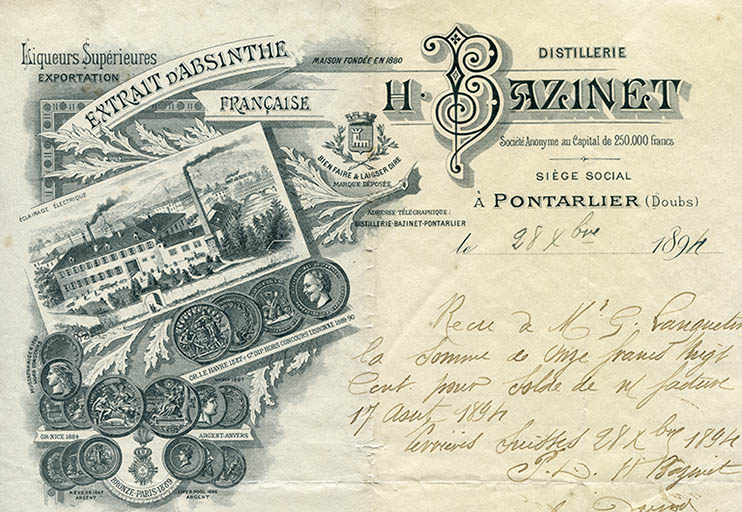 Liqueurs Supérieures
EXPORTATION
EXTRAIT D'ABSINTHE
FRANÇAISE
MAISON FONDÉE EN 1880
DISTILLERIE
H. BAZINET
Société Anonyme au Capital de 250.000 francs
SIÈGE SOCIAL
À PONTARLIER (Doubs)
BIEN FAIRE & LAISSER DIRE
MARQUE DÉPOSÉE
ADRESSE TÉLÉGRAPHIQUE :
DISTILLERIE-BAZINET-PONTARLIER
le 28 Xbre 1894
ÉCLAIRAGE ÉLECTRIQUE
OR. LE HAVRE 1887 & Gd DIP. HORS CONCOURS LISBONNE 1889-90
OR-NICE 1884
ARGENT-ANVERS
BRONZE-PARIS-1889
NEVERS 1887
ARGENT
LIVERPOOL 1886
ARGENT
Recu de Mr G. Lanquetin
la somme de Onze francs Vingt
Cent. pour solde de n/ facture
17 Aout 1894
Verrières Suisses 28 Xbre 1894
P. D. H Bazinet